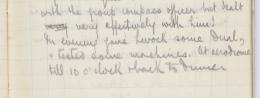 with the group compass officer but dealt
very effectively with him!
In evening gave Lwock some Dual,
& tested some machines. At aerodrome
till 10 o'clock & back to dinner